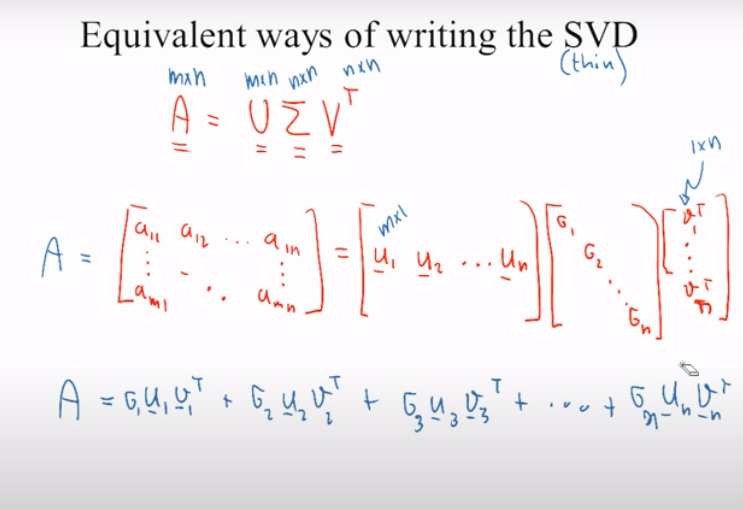 Equivalent ways of writing the SVD
(thin)
m×n m×n n×n n×n
A = U Σ Vᵀ
1×n
m×1
A = [a₁₁ a₁₂ ... a₁ₙ ⋮ ⋱ ⋮ aₘ₁ aₘₙ] = [u₁ u₂ ... uₙ] [σ₁ σ₂ ⋱ σₙ] [v₁ᵀ ⋮ vₙᵀ]
A = σ₁u₁v₁ᵀ + σ₂u₂v₂ᵀ + σ₃u₃v₃ᵀ + ... + σₙuₙvₙᵀ